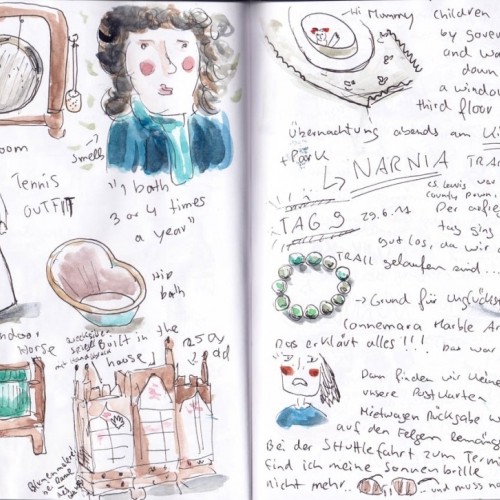 oom
Tennis
OUTFIT
smells
"1 bath
3 or 4 times
a year"
Hip
bath
ndoor
Horse
Built in the
house
1250y
old
Hi Mummy
children
by gover
and wa
down
a window
third floor
Übernachtung abends am
+ PARK
NARNIA TRAIL
CS. Lewis war
County Down.
TAG 9 29.6.11
Der
tag ging
gut los, da wir d
TRAIL gelaufen sind...
→ Grund für unglücks
Connemara Marble Ar
Das erklärt alles!!! bar war
Dann finden wir keine
unsere Postkarten
Mietwagen Rückgabe w
auf den Felgen bemäng
Bei der Shuttlefahrt zum Termi
find ich meine Sonnenbrille
nicht mehr. und muss no